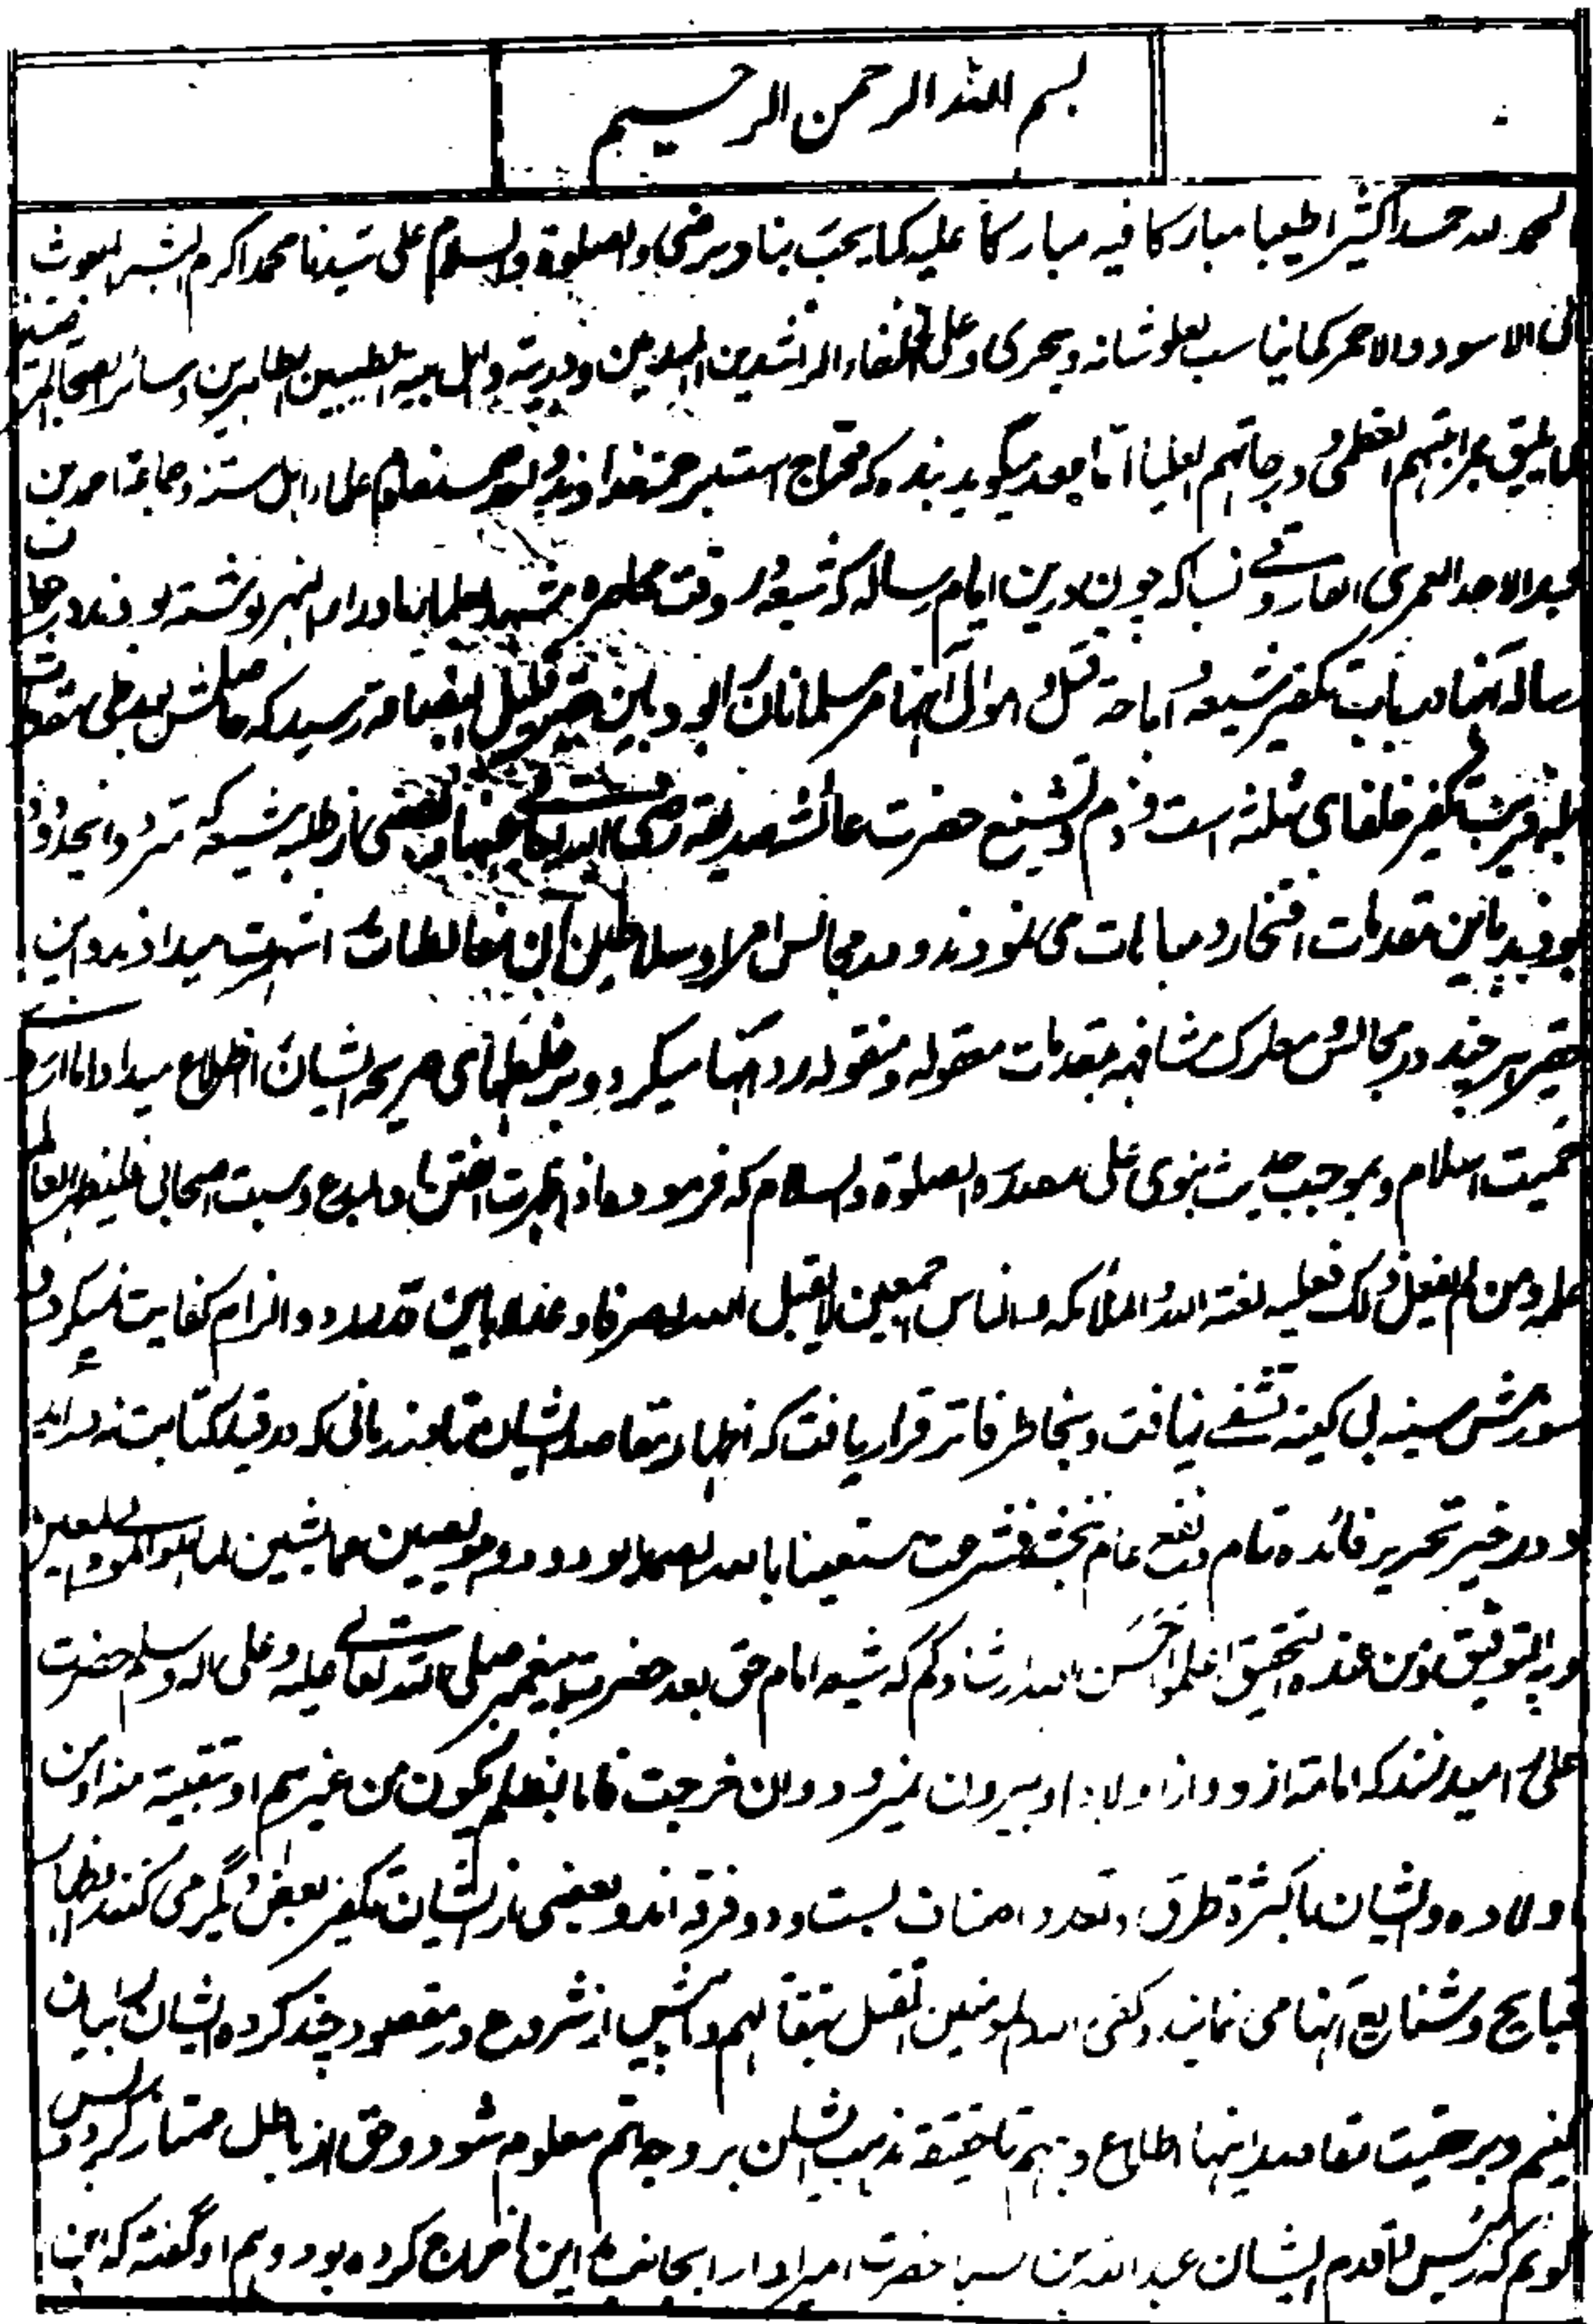 بسم الله الرحمن الرحیم
الحمد لله حمدا کثیرا طیبا مبارکا فیه مبارکا علیه کما یحب ربنا و یرضی والصلوة والسلام علی سیدنا محمد اکرم البشر المبعوث
الی الاسود والاحمر کما یناسب بعلو شانه و یحری و علی الخلفاء الراشدین المهدیین و ذریته و اهل بیته الطیبین الطاهرین و سائر الصحابة المرضیین
کما یلیق بمراتبهم العظمی و درجاتهم العلیا اما بعد میگوید بنده که محتاج است برحمة خداوند و خادم علماء اهل سنة و جماعة احمد بن
عبد الاحد العمری الفاروقی نسبا که چون درین ایام رساله که شیعه در وقت محاصره مشهد بعلماء ماوراء النهر نوشته بودند در جواب
رساله آنها در باب تکفیر شیعه و اباحة قتل و اموال آنها مر مسلمانان را بود باین حقیر قلیل البضاعة رسید که حاصلش بعد طی مقدمات
تکفیر خلفای ثلثه است و ذم و تشنیع حضرت عائشه صدیقه رضی الله تعالی عنها و بعضی از طلبه شیعه که متردد این حدود
بودند باین مقدمات افتخار و مباهات می نمودند و در مجالس امراء و سلاطین این مغالطات را شهرت میدادند و این
حقیر هر چند در مجالس و معارک مشافهة بمقدمات معقوله و منقوله رد آنها میکرد و بر غلطهای صریحه ایشان اطلاع میداد اما از
حمیت اسلام و بموجب حدیث نبوی علی مصدره الصلوة والسلام که فرموده اذا ظهرت الفتن او البدع و سبت اصحابی فلیظهر العالم
علمه و من لم یفعل ذلک فعلیه لعنة الله و الملائکه و الناس اجمعین لا یقبل الله له صرفا و عدلا باین قدر رد و الزام کفایت نمیکرد و
سوزش سینه بی کینه تشفی نیافت و بخاطر فاتر قرار یافت که اظهار مقاصد ایشان تا وقتی که در قید کتابت نه درآید
و در حیز تحریر فائده تام و نفع عام نبخشد فشرعت مستعینا بالله الصمد الودود و هو یعصمنی عما یشین انه هو المولی المعین
و به التوفیق و من عنده التحقیق اعلموا احسن الله ارشادکم که شیعه امام حق بعد حضرت پیغمبر صلی الله تعالی علیه و علی اله و سلم حضرت
علی را میدانند که امامة از و و از اولاد او بیرون نمیرود و ان خرجت فاما بظلم یکون من غیرهم او بتقیة منه او من
اولاده و ایشان با کثرة طرق و تعدد اصناف بست و دو فرقه اند و بعضی از ایشان تکفیر بعض دیگر می کنند و اظهار
قبایح و شنایع آنها می نمایند و کفی الله المؤمنین القتال بقتالهم و پیش از شروع در مقصود چند گروه ایشان را بیان
کنیم و بر حقیقت مقاصد اینها اطلاع دهیم تا حقیقة مذهب ایشان بر وجه اتم معلوم شود و حق از باطل ممتاز گردد پس
گویم که رئیس اقدم ایشان عبد الله بن سبا حضرت امیر او را بجانب مداین اخراج کرده بود و هم او گفته که ابن